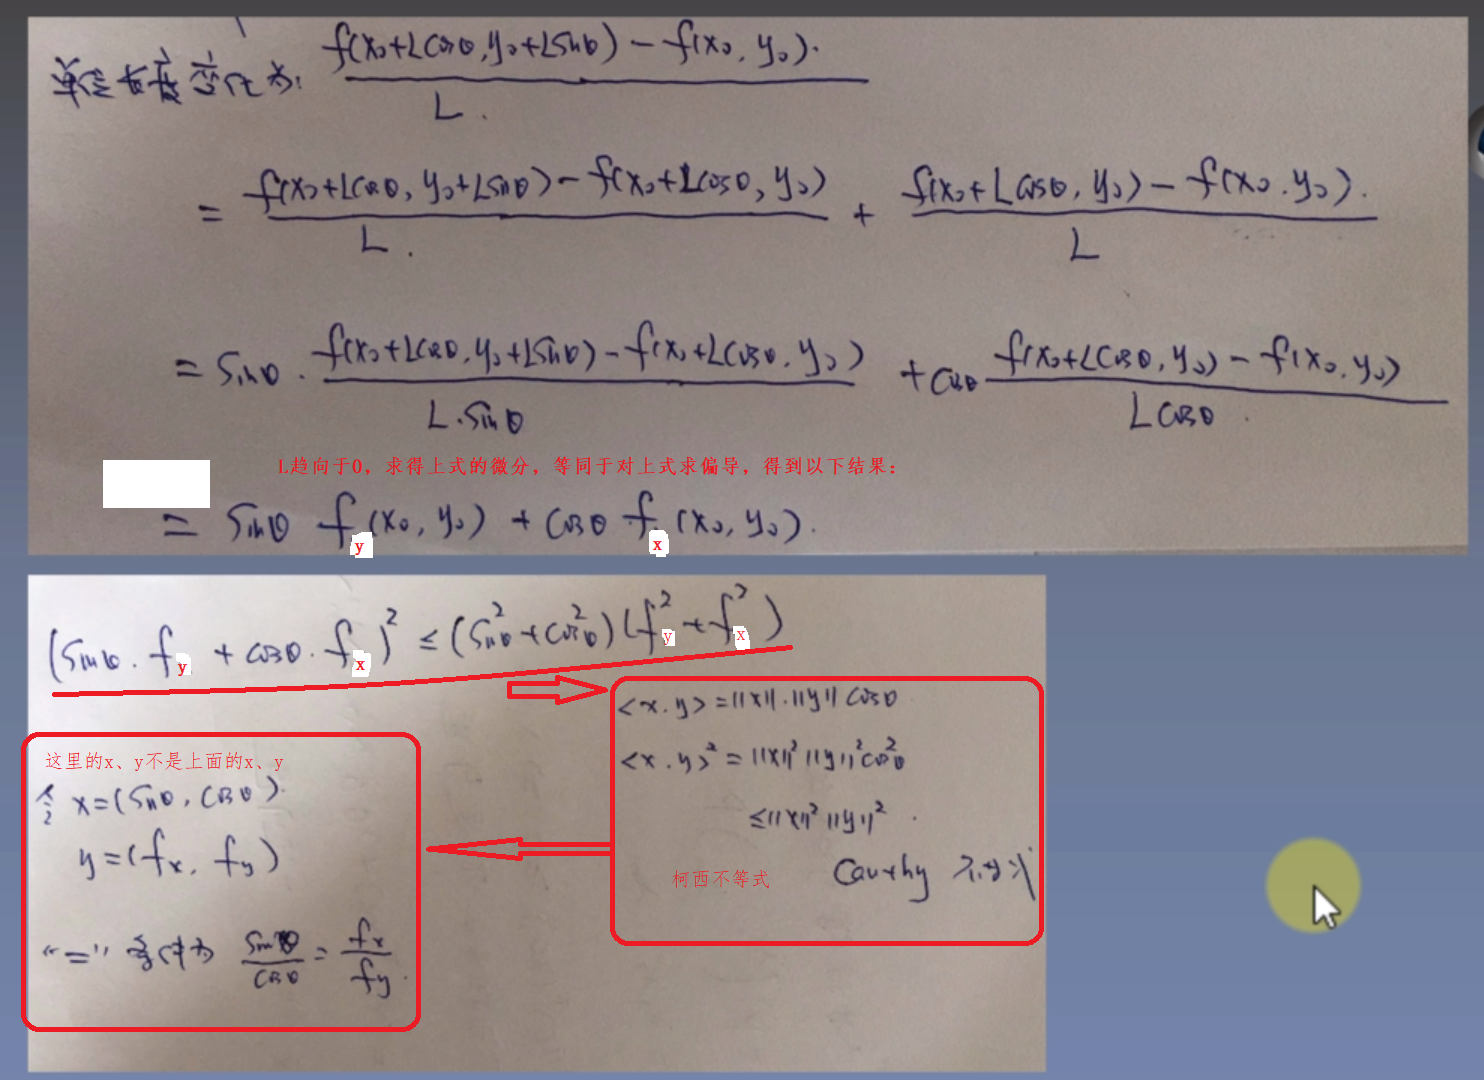 单位长度变化为: f(x₀+Lcosθ, y₀+Lsinθ) − f(x₀, y₀). / L.
= f(x₀+Lcosθ, y₀+Lsinθ) − f(x₀+Lcosθ, y₀) / L. + f(x₀+Lcosθ, y₀) − f(x₀, y₀). / L
= sinθ · f(x₀+Lcosθ, y₀+Lsinθ) − f(x₀+Lcosθ, y₀) / L·sinθ + cosθ f(x₀+Lcosθ, y₀) − f(x₀, y₀) / Lcosθ.
L趋向于0，求得上式的微分，等同于对上式求偏导，得到以下结果：
= sinθ f_y(x₀, y₀) + cosθ f_x(x₀, y₀).
(sinθ · f_y + cosθ · f_x)² ≤ (sin²θ + cos²θ)(f_y² + f_x²)
<x.y> = ||x||·||y|| cosθ
<x.y>² = ||x||² ||y||² cos²θ
≤ ||x||² ||y||².
柯西不等式 Cauchy 不等式
这里的x、y不是上面的x、y
令 x=(sinθ, cosθ).
y=(f_x, f_y)
“=” 条件为 sinθ / cosθ = f_x / f_y.